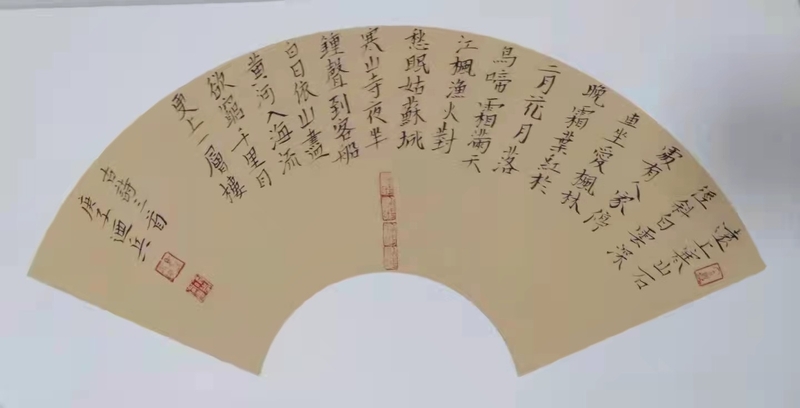 遠上寒山石
徑斜白雲深
處有人家停
車坐愛楓林
晚霜葉紅於
二月花月落
烏啼霜滿天
江楓漁火對
愁眠姑蘇城
寒山寺夜半
鍾聲到客船
白日依山盡
黃河入海流
欲窮千里目
更上一層樓
古詩三首
庚子迺兵